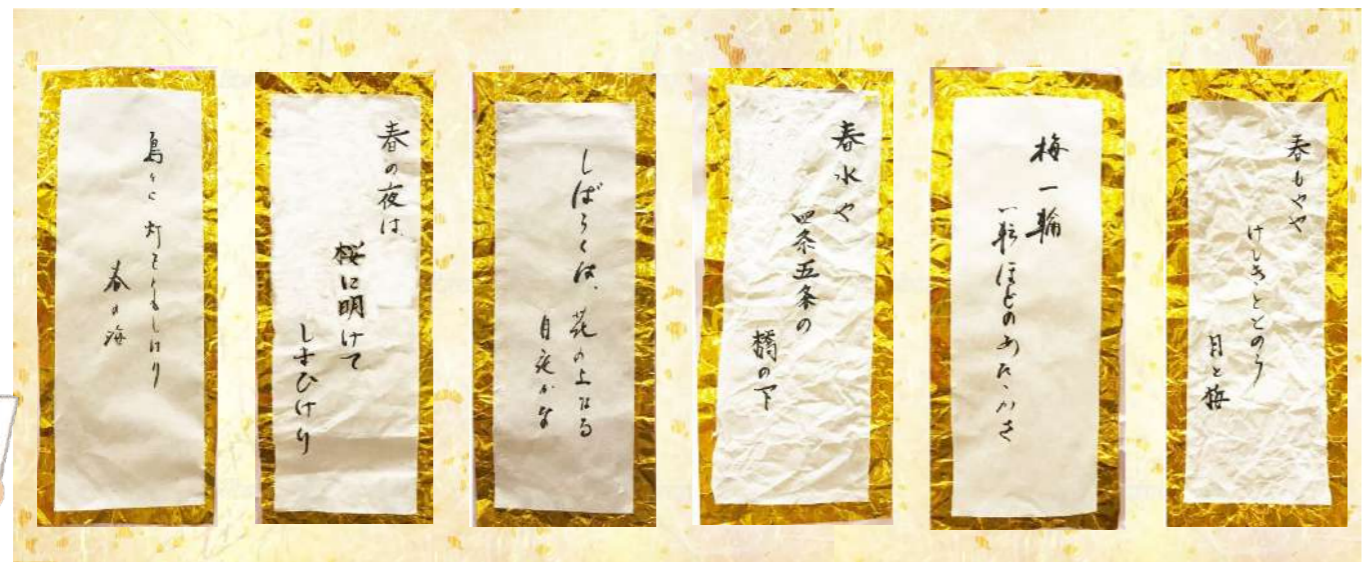 春もやや
けしきととのう
月と梅
梅一輪
一輪ほどのあたゝかさ
春水や
四条五条の
橋の下
しばらくは、花の上なる
月夜かな
春の夜は、
桜に明けて
しまひけり
島々に灯をともしけり
春の海